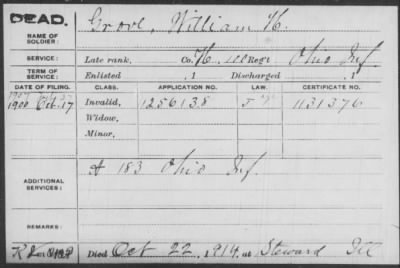 DEAD.
NAME OF SOLDIER: Grove, William H.
SERVICE: Late rank, Co. H, 100 Reg't Ohio Inf.
TERM OF SERVICE: Enlisted , 1 Discharged , 1
DATE OF FILING. CLASS. APPLICATION NO. LAW. CERTIFICATE NO.
1900 Oct. 17 Invalid, 1256138 1131376
Widow,
Minor,
ADDITIONAL SERVICES: A 183 Ohio Inf.
REMARKS:
Died Oct 22, 1914, at Steward Ill